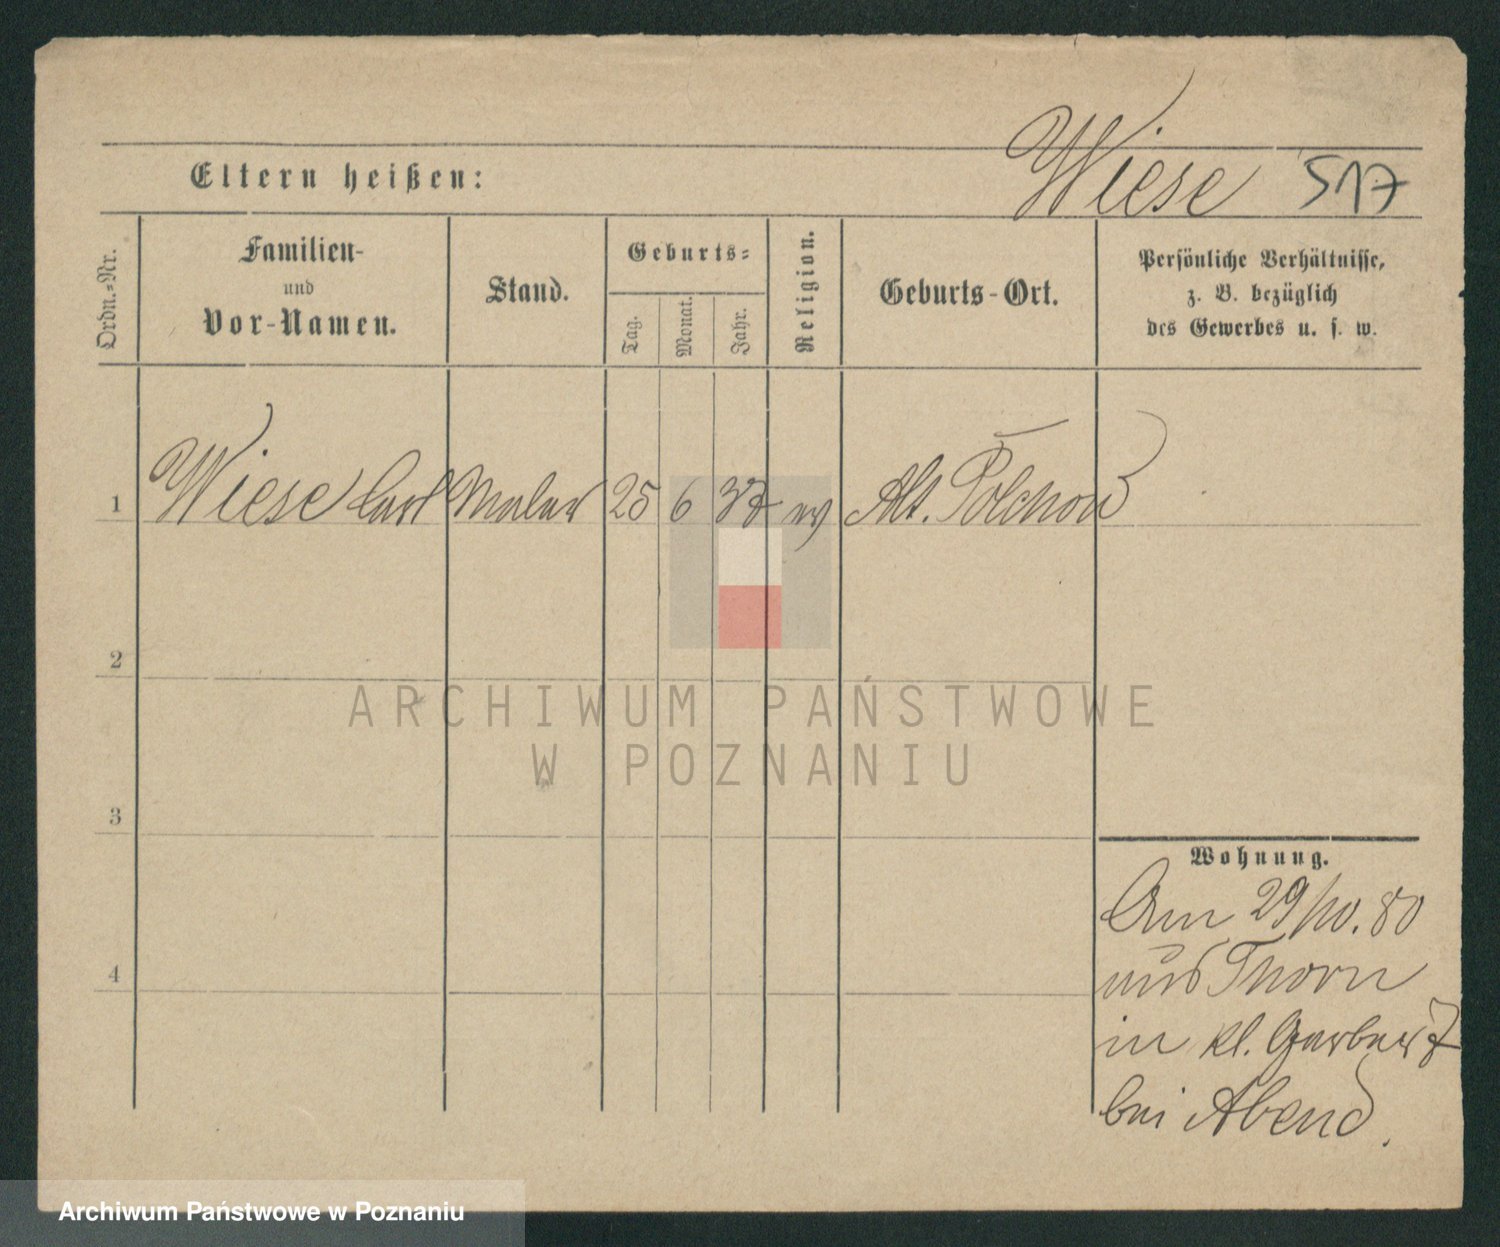 Wiese 517
Eltern heißen:
Ordn.-Nr.
Familien-
und
Vor-Namen.
Stand.
Geburts-
Tag.
Monat.
Jahr.
Religion.
Geburts-Ort.
Persönliche Verhältnisse,
z. B. bezüglich
des Gewerbes u. s. w.
1 Wiese Carl Maler 25 6 37 ev Alt. Polchow
2
3
4
Wohnung.
Am 29/10. 80
aus Thorn
in kl. Gerber 7
bei Abend.
ARCHIWUM PAŃSTWOWE
W POZNANIU
Archiwum Państwowe w Poznaniu